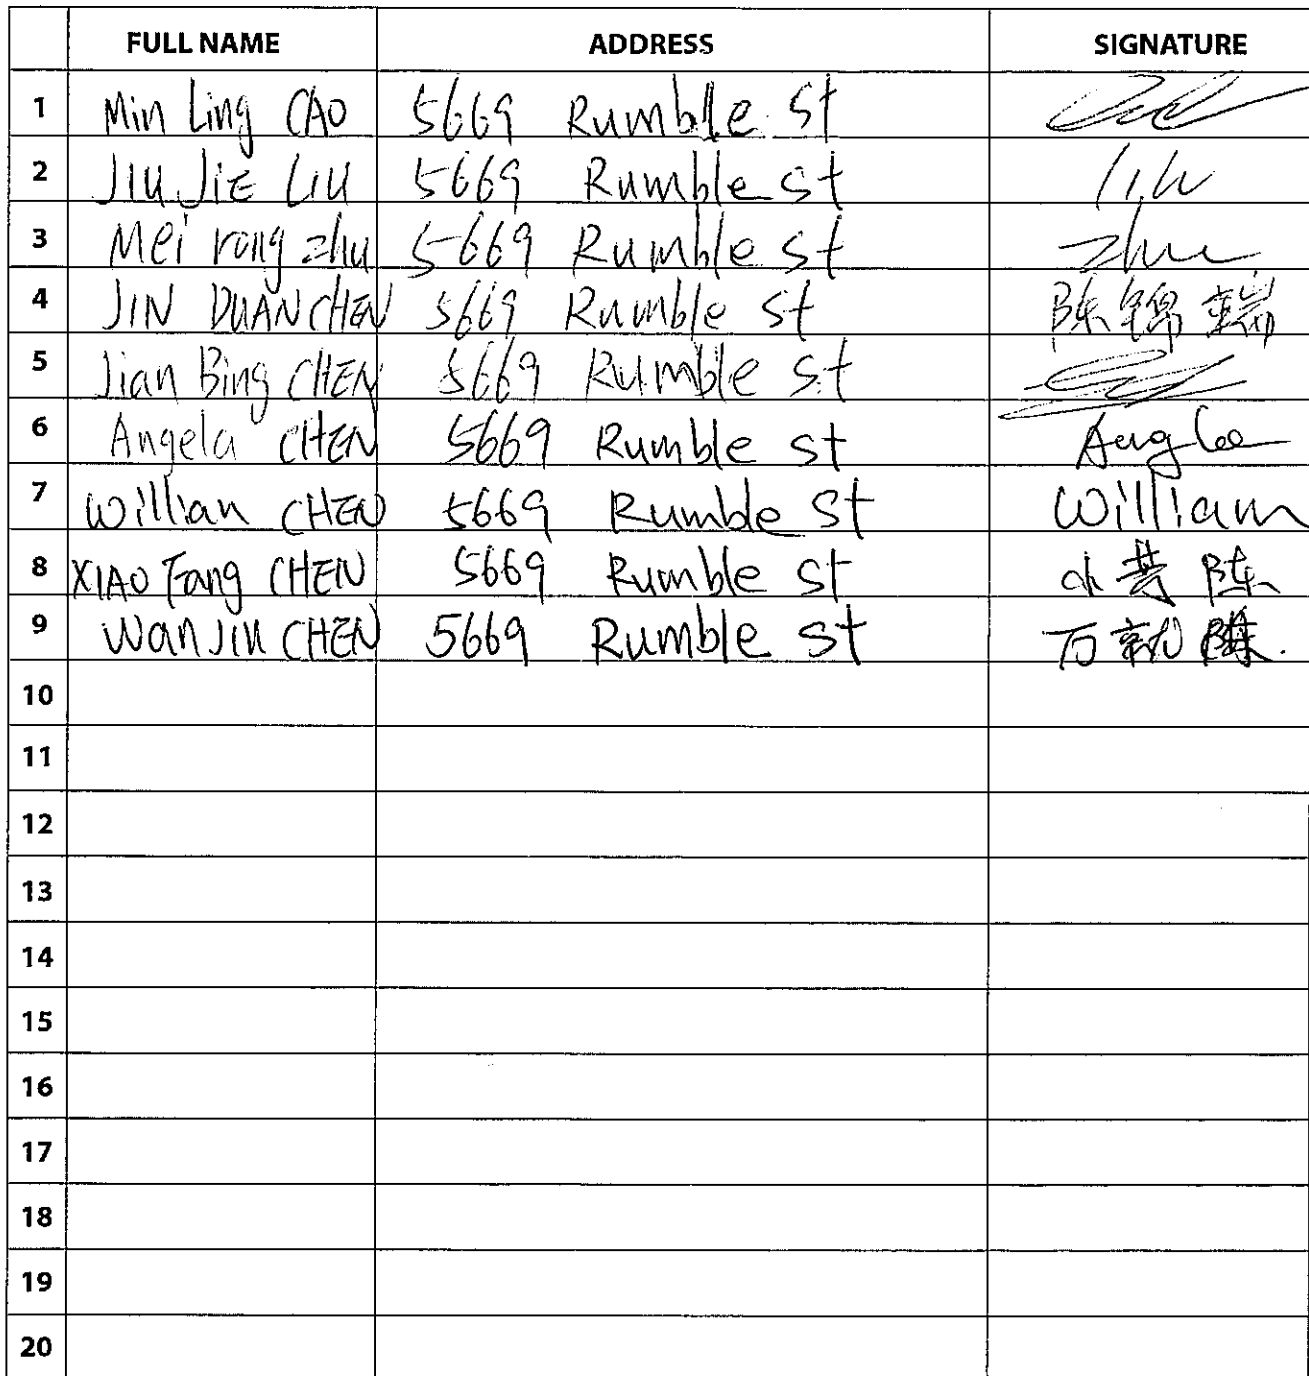 FULL NAME ADDRESS SIGNATURE
1 Min Ling CAO 5669 Rumble St
2 JIU JIE LIU 5669 Rumble St Liu
3 Mei rong zhu 5669 Rumble St zhu
4 JIN DUAN CHEN 5669 Rumble St 陈锦端
5 Jian Bing CHEN 5669 Rumble St
6 Angela CHEN 5669 Rumble St
7 Willian CHEN 5669 Rumble St William
8 XIAO Fang CHEN 5669 Rumble St 小芳 陈
9 Wan JIU CHEN 5669 Rumble St 万就 陈
10
11
12
13
14
15
16
17
18
19
20